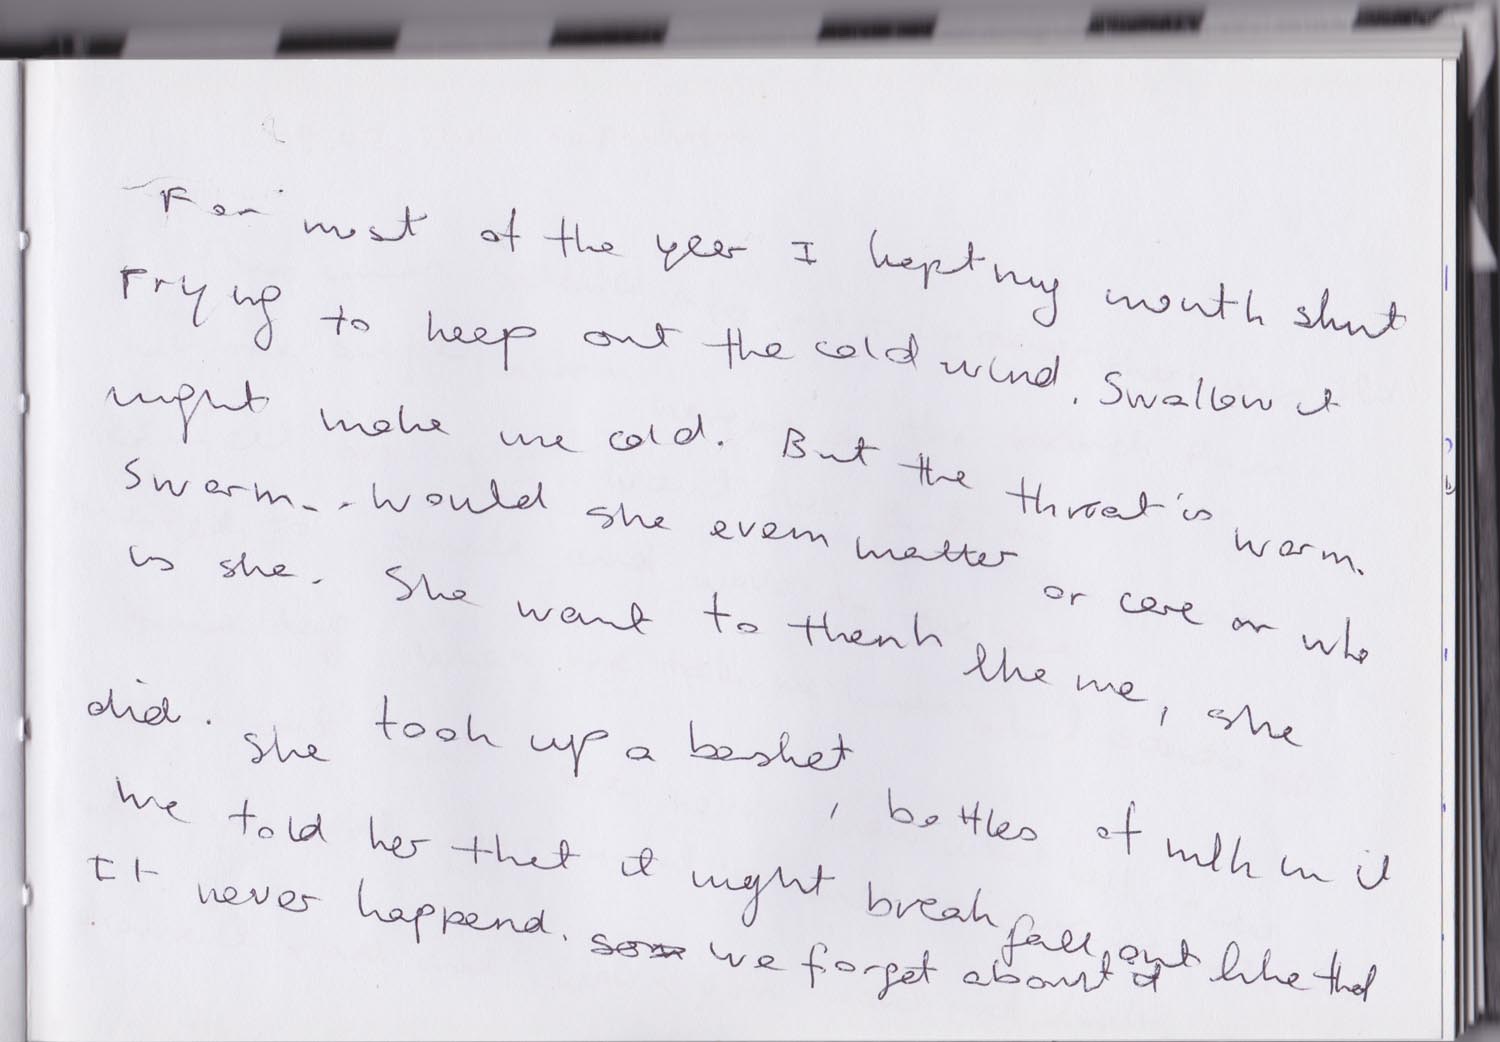 For most of the year I kept my mouth shut
Trying to keep out the cold wind. Swallow it
might make me cold. But the throat is warm.
Swarm... would she even matter or care or who
is she. She want to thank like me, she
did. She took up a basket, bottles of milk in it
We told her that it might break fall out like that
It never happend. we forget about it